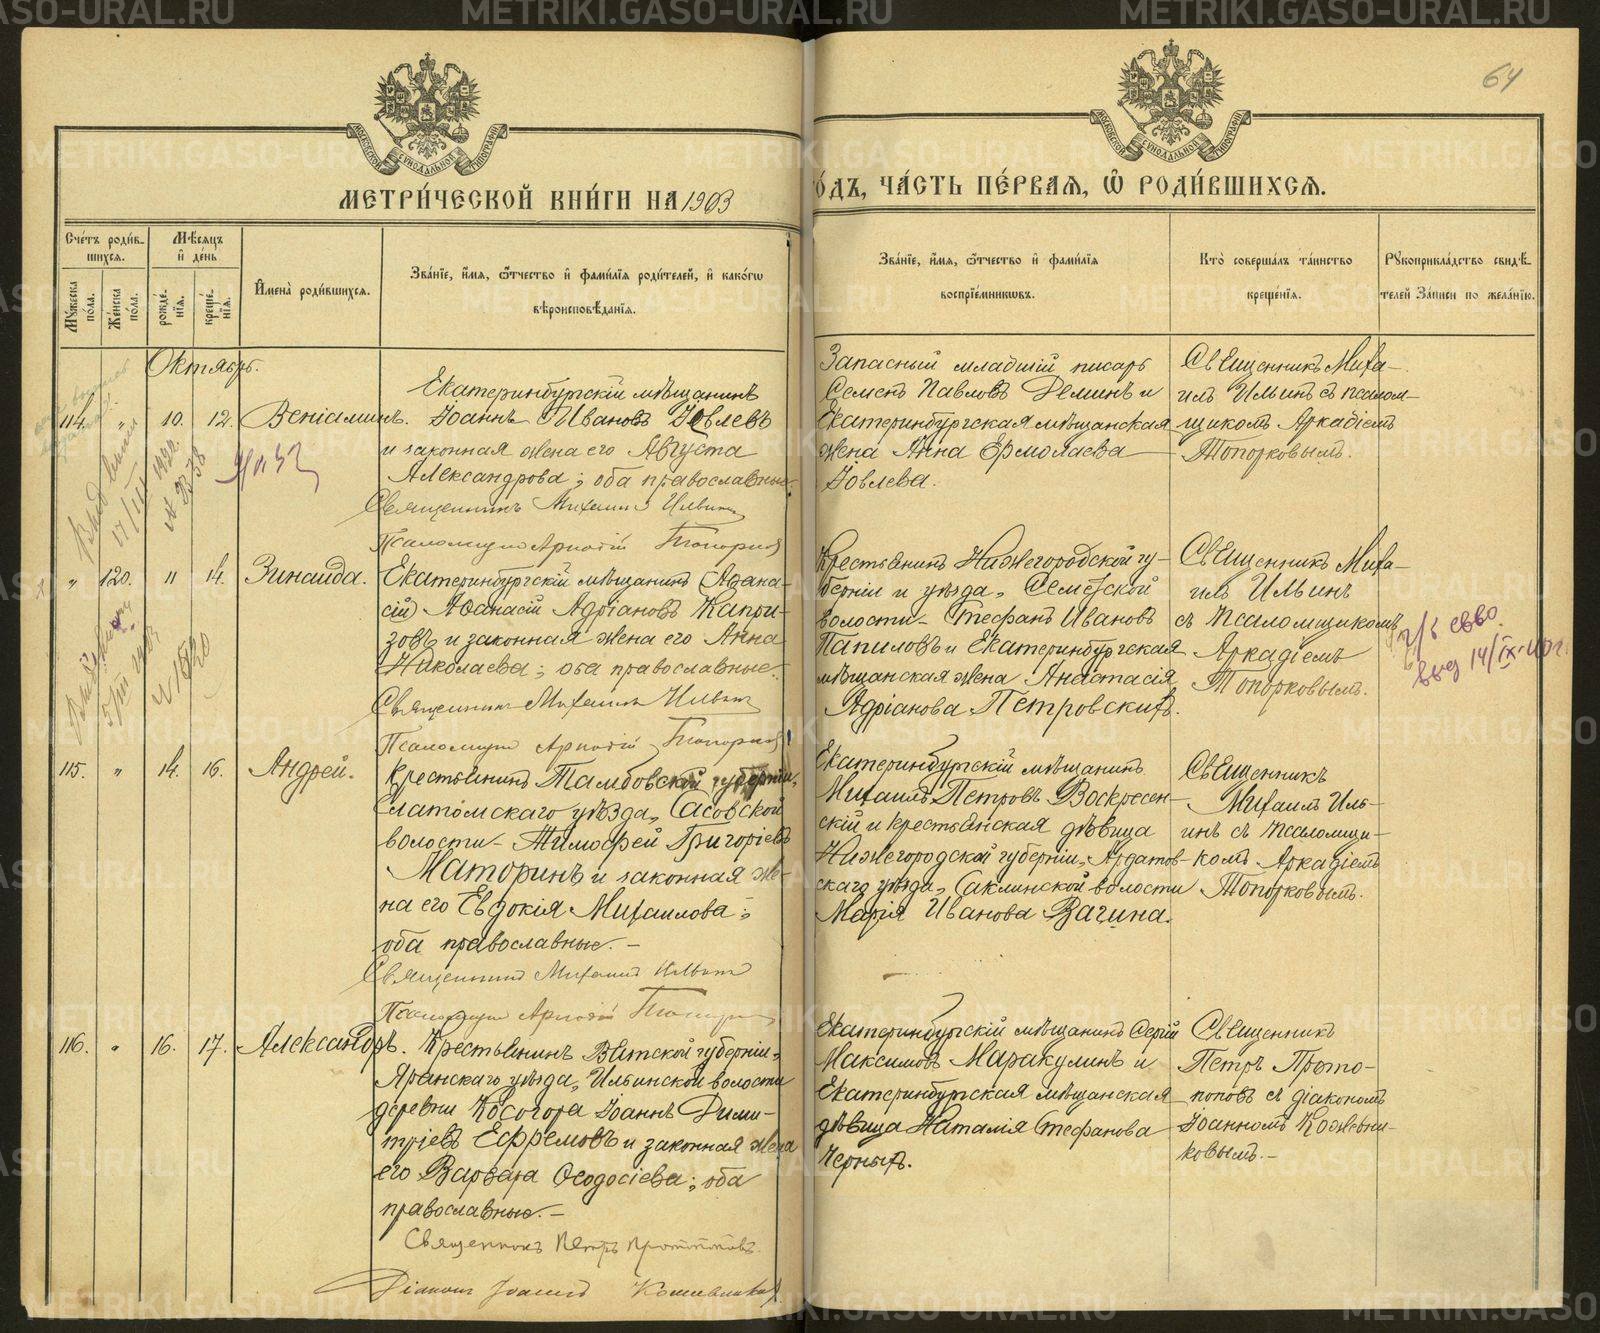 64
МЕТРИ́ЧЕСКОЙ КНИ́ГИ НА 1903
ГО́ДЪ, ЧА́СТЬ ПЕ́РВАЯ, Ѡ РОДИ́ВШИХСЯ.
Сче́тъ роди́в-
шихся.
Му́жеска по́ла.
Же́нска по́ла.
Мѣ́сяцъ
и де́нь
рожде́нїя.
креще́нїя.
И́мена роди́вшихся.
Зва́нїе, и́мя, ѻ́тчество и фами́лїя роди́телей, и како́гѡ
вѣроисповѣ́данїя.
Зва́нїе, и́мя, ѻ́тчество и фами́лїя
воспрїе́мниковъ.
Кто̀ соверша́лъ та́инство
креще́нїя.
Рꙋкоприкла́дство свидѣ́-
телей за́писи по жела́нїю.
Октябрь.
114. " 10. 12. Венiаминъ.
Екатеринбургскiй мѣщанинъ
Iоаннъ Ивановъ Iовлевъ
и законная жена его Августа
Александрова; оба православные.
Священникъ Михаилъ Ильинъ
Псаломщикъ Аркадiй Топорков
Запасный младшiй писарь
Семенъ Павловъ Деминъ и
Екатеринбургская мѣщанская
жена Анна Ермолаева
Iовлева.
Священникъ Миха-
илъ Ильинъ съ псалом-
щикомъ Аркадiемъ
Топорковымъ.
" 120. 11 14. Зинаида.
Екатеринбургскiй мѣщанинъ (Афана-
сiй) Афанасiй Адрiановъ Капри-
зовъ и законная жена его Анна
Николаева; оба православные.
Священникъ Михаилъ Ильинъ
Псаломщикъ Аркадiй Топорков
Крестьянинъ Нижегородской гу-
бернiи и уѣзда,
волости Стефанъ Ивановъ
Папиловъ и Екатеринбургская
мѣщанская жена Анастасiя
Адрiанова Петровскихъ.
Священникъ Миха-
илъ Ильинъ
съ Псаломщикомъ
Аркадiемъ
Топорковымъ.
115. " 14. 16. Андрей.
Крестьянинъ Тамбовской губернiи,
Елатомскаго уѣзда, Сасовской
волости Тимофей Григорiевъ
Маторинъ и законная же-
на его Евдокiя Михаилова;
оба православные.
Священникъ Михаилъ Ильинъ
Псаломщикъ Аркадiй Топорков
Екатеринбургскiй мѣщанинъ
Михаилъ Петровъ Воскресен-
скiй и крестьянская дѣвица
Нижегородской губернiи, Ардатов-
скаго уѣзда, Саклинской волости
Марiя Иванова Вагина.
Священникъ
Михаилъ Иль-
инъ съ псаломщи-
комъ Аркадiемъ
Топорковымъ.
116. " 16. 17. Александръ.
Крестьянинъ Вятской губернiи,
Яранскаго уѣзда, Ильинской волости
деревни Косогора Iоаннъ Дими-
трiевъ Ефремовъ и законная жена
его Варвара Феодосiева; оба
православные.
Священникъ Петръ Протопоповъ.
Дiаконъ Iоаннъ Кожевников
Екатеринбургскiй мѣщанинъ Сергiй
Максимовъ Маракулинъ и
Екатеринбургская мѣщанская
дѣвица Наталiя Стефанова
Черныхъ.
Священникъ
Петръ Прото-
поповъ съ дiакономъ
Iоанномъ Кожевни-
ковымъ.
METRIKI.GASO-URAL.RU